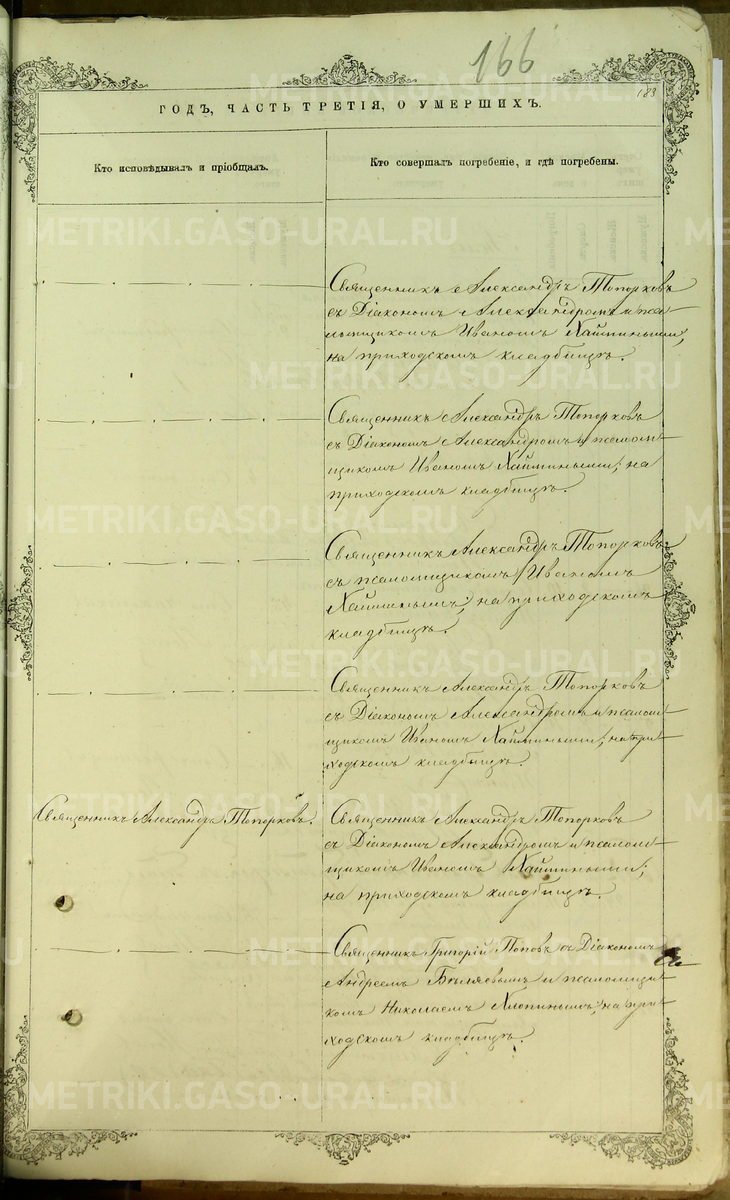 166
183
ГОДЪ, ЧАСТЬ ТРЕТІЯ, О УМЕРШИХЪ.
Кто исповѣдывалъ и пріобщалъ.
Кто совершалъ погребеніе, и гдѣ погребены.
Священникъ Александръ Топорковъ
съ Діакономъ Александромъ и пса-
ломщикомъ Иваномъ
на приходскомъ кладбищѣ.
Священникъ Александръ Топорковъ
съ Діакономъ Александромъ и псалом-
щикомъ Иваномъ на
приходскомъ кладбищѣ.
Священникъ Александръ Топорковъ
съ псаломщикомъ Иваномъ
на приходскомъ
кладбищѣ.
Священникъ Александръ Топорковъ
съ Діакономъ Александромъ и псалом-
щикомъ Иваномъ на при-
ходскомъ кладбищѣ.
Священникъ Александръ Топорковъ.
Священникъ Александръ Топорковъ
съ Діакономъ Александромъ и псалом-
щикомъ Иваномъ
на приходскомъ кладбищѣ.
Священникъ Григорій Поповъ съ Діакономъ
Андреемъ Бѣляевымъ и псаломщи-
комъ Николаемъ Хлопинымъ; на при-
ходскомъ кладбищѣ.
METRIKI.GASO-URAL.RU